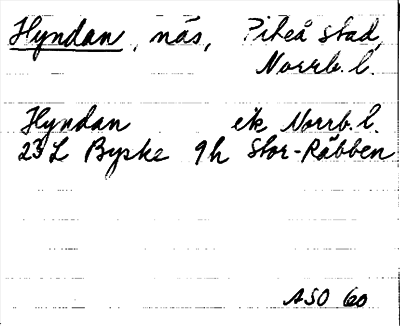 Hyndan, näs, Piteå stad,
Norrb. l.
Hyndan ek Norrb. l.
23 L Byske 9h Stor-Räbben
ASO 60